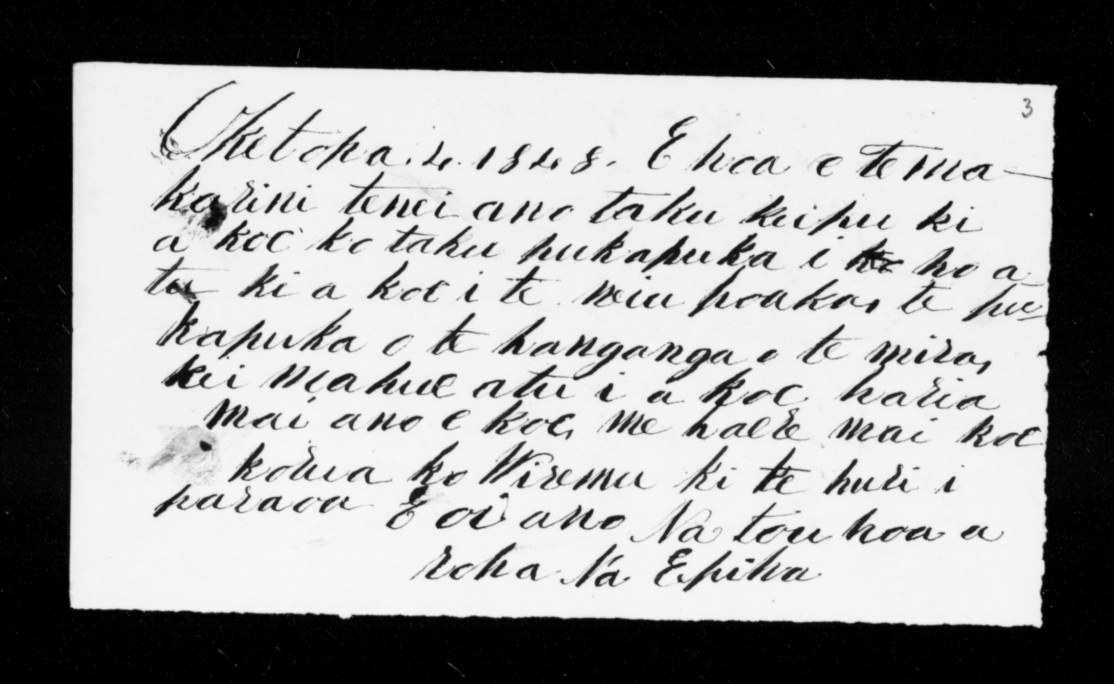 3
Oketopa. 4. 1848. E hoa e te ma-
karini tenei ano taku kupu ki
a koe ko taku pukapuka i ho a
tu ki a koe i te wiu poaka, te pu-
kapuka o te hanganga o te mira,
kei mahue atu i a koe haria
mai ano e koe, me haere mai koe
korua ko Wiremu ki te huri i
paraoa E oi ano Na tou hoa a
roha Na Epiha